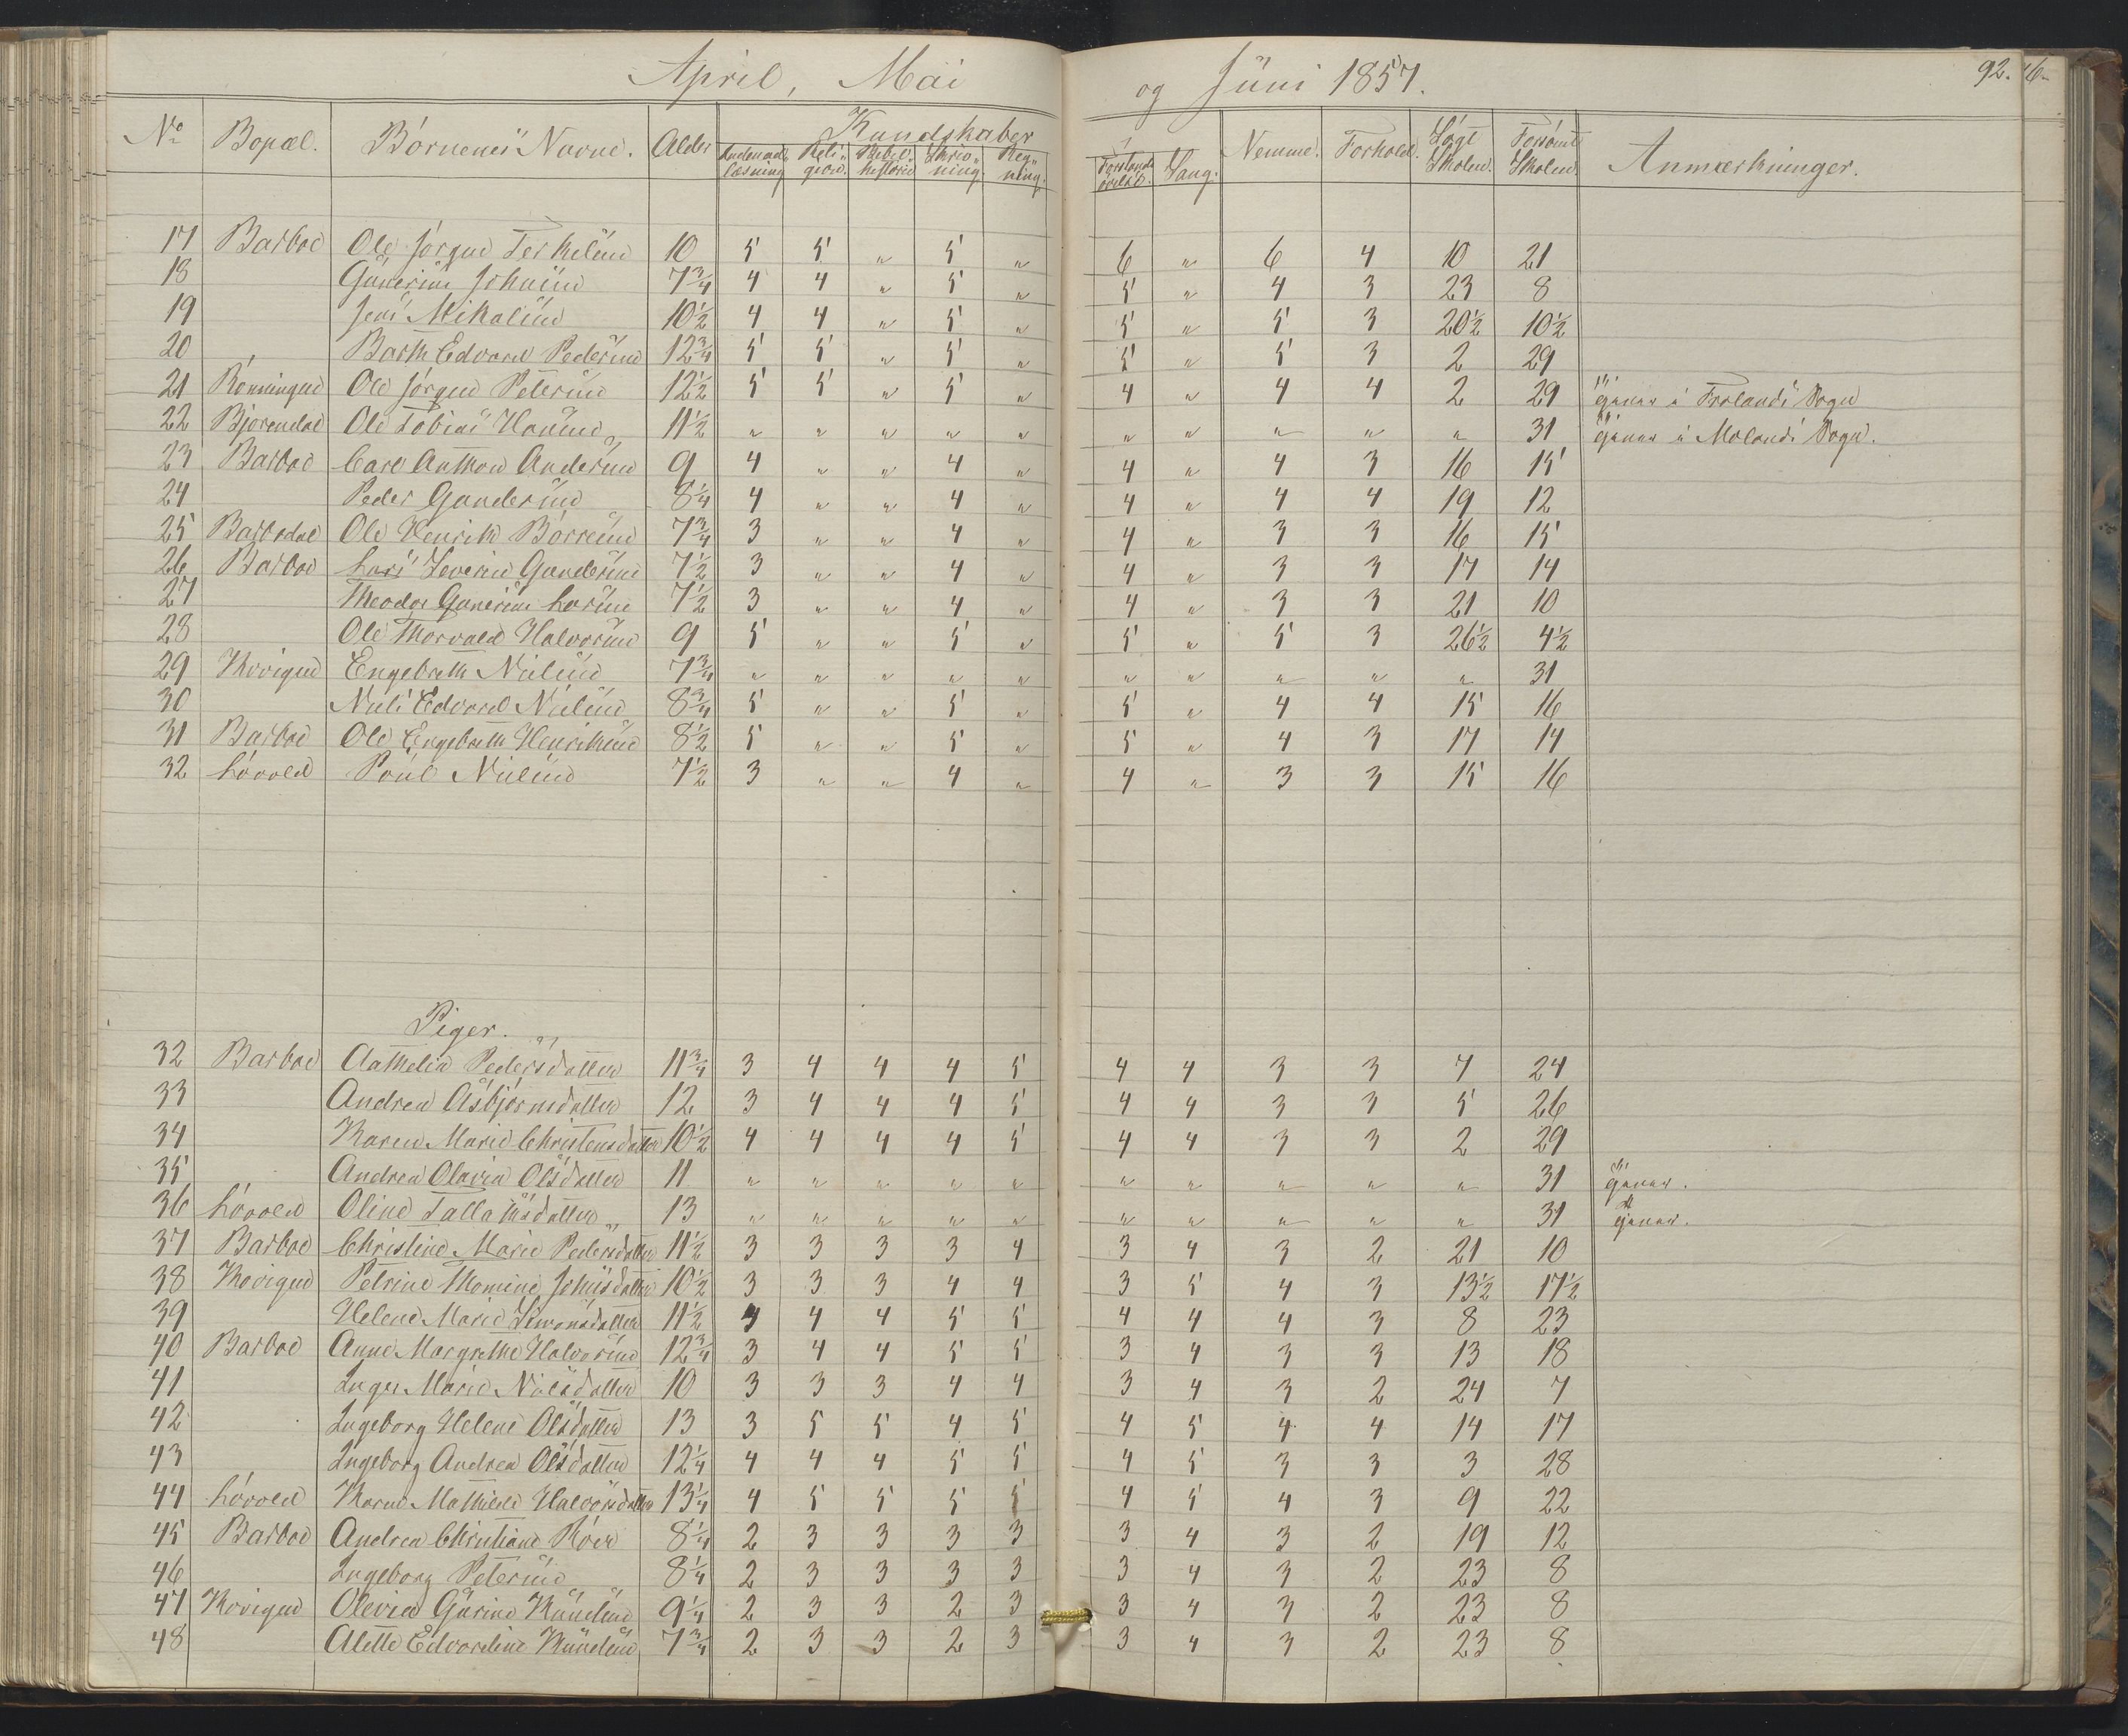 April, Mai og Juni 1857. 92.
No Bopæl. Börnenes Navne. Alder Kundskaber Nemme. Forhold. Søgt Skolen. Forsømt Skolen. Anmærkninger.
Indenadlæsning Religion Bibelhistorie Skrivning. Regning. Forstandsøvels. Sang.
17 Barboe Ole Jörgen Terkelsen 10 5 5 " 5 " 6 " 6 4 10 21
18 Gunerius Johnsen 7¾ 4 4 " 5 " 5 " 4 3 23 8
19 Jens Mikalsen 10½ 4 4 " 5 " 5 " 5 3 20½ 10½
20 Barth Edvard Pedersen 12¾ 5 5 " 5 " 5 " 5 3 2 29
21 Rønningen Ole Jörgen Petersen 12½ 5 5 " 5 " 4 " 4 4 2 29 tjener i Frolands Sogn
22 Bjorendal Ole Tobias Hansen 11½ " " " " " " " " " " 31 tjener i Molands Sogn.
23 Barboe Carl Anthon Andersen 9 4 " " 4 " 4 " 4 3 16 15
24 Peder Gundersen 8¼ 4 " " 4 " 4 " 4 4 19 12
25 Barbodal Ole Henrik Börresen 7¾ 3 " " 4 " 4 " 3 3 16 15
26 Barboe Lars Severin Gundersen 7½ 3 " " 4 " 4 " 3 3 17 14
27 Theodor Gunerius Larsen 7½ 3 " " 4 " 4 " 3 3 21 10
28 Ole Thorvald Halvorsen 9 5 " " 5 " 5 " 5 3 26½ 4½
29 Kovigen Engebreth Nielsen 7¾ " " " " " " " " " " 31
30 Niels Edvard Nielsen 8¾ 5 " " 5 " 5 " 4 4 15 16
31 Barboe Ole Engebreth Henriksen 8½ 5 " " 5 " 5 " 4 3 17 14
32 Lövold Poul Nielsen 7½ 3 " " 4 " 4 " 3 3 15 16
Piger.
32 Barboe Aathelia Pedersdatter 11¾ 3 4 4 4 5 4 4 3 3 7 24
33 Andrea Asbjörnsdatter 12 3 4 4 4 5 4 4 3 3 5 26
34 Karen Marie Christensdatter 10½ 4 4 4 4 5 4 4 3 3 2 29
35 Andrea Olavia Olsdatter 11 " " " " " " " " " " 31 tjener.
36 Lövold Oline Tallaksdatter 13 " " " " " " " " " " 31 tjener.
37 Barboe Christine Marie Pedersdatter 11½ 3 3 3 3 4 3 4 3 2 21 10
38 Kovigen Petrine Thomine Johnsdatter 10½ 3 3 3 4 4 3 5 4 3 13½ 17½
39 Helene Marie Simonsdatter 11½ 4 4 4 5 5 4 4 4 3 8 23
40 Barboe Anne Margrethe Halvorsen 12¾ 3 4 4 5 5 3 4 3 3 13 18
41 Inger Marie Nielsdatter 10 3 3 3 4 4 3 4 3 2 24 7
42 Ingeborg Helene Olsdatter 13 3 5 5 4 5 4 5 4 4 14 17
43 Ingeborg Andrea Olsdatter 12¼ 4 4 4 5 5 4 5 3 3 3 28
44 Lövold Karen Mathilde Halvorsdatter 13¼ 4 5 5 5 5 4 5 4 3 9 22
45 Barboe Andrea Christiane Röer 8¼ 2 3 3 3 3 3 4 3 2 19 12
46 Ingeborg Petersen 8¼ 2 3 3 3 3 3 4 3 2 23 8
47 Kovigen Olevia Gurine Knudsen 9¼ 2 3 3 2 3 3 4 3 2 23 8
48 Alette Edvardine Knudsen 7¾ 2 3 3 2 3 3 4 3 2 23 8